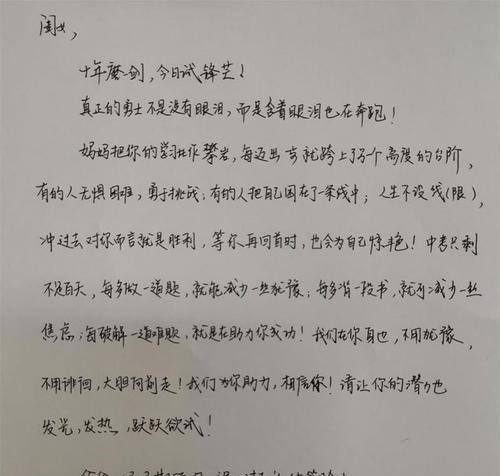 闺女，
十年磨一剑，今日试锋芒！
真正的勇士不是没有眼泪，而是含着眼泪也在奔跑！
妈妈把你的学习比作攀岩，每迈出一步就跨上了一个高度的台阶，
有的人无惧困难，勇于挑战；有的人把自己困在了一条线中；人生不设线(限)，
冲过去对你而言就是胜利，等你再回首时，也会为自己惊艳！中考只剩
不足百天，每多做一道题，就能减少一丝犹豫；每多背一段书，就可减少一丝
焦虑；每破解一道难题，就是在助力你成功！我们在你身边，不用犹豫，
不用徘徊，大胆向前走！我们为你助力，相信你！请让你的潜力也
发光，发热，跃跃欲试！